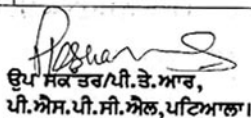 ਉਪ ਸਕੱਤਰ/ਪੀ.ਤੇ.ਆਰ,
ਪੀ.ਐਸ.ਪੀ.ਸੀ.ਐਲ,ਪਟਿਆਲਾ।